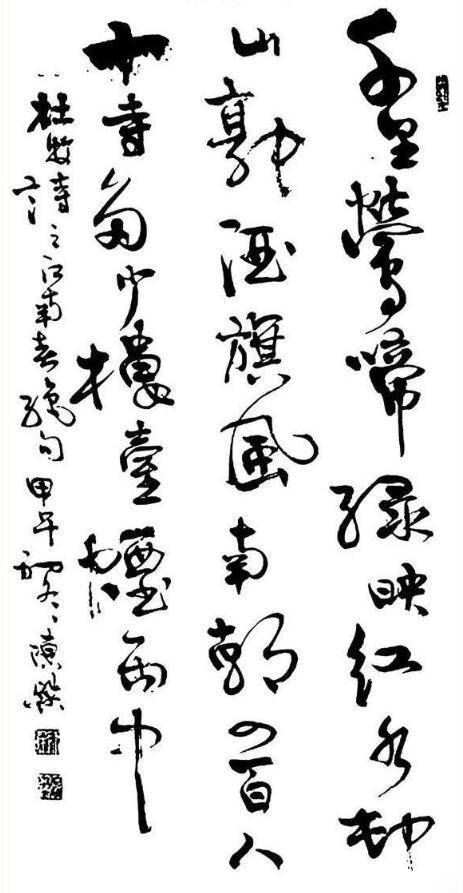 千里鶯啼綠映紅水邨
山郭酒旗風南朝四百八
十寺多少樓臺煙雨中
杜牧詩之江南春絕句 甲午初冬 陳